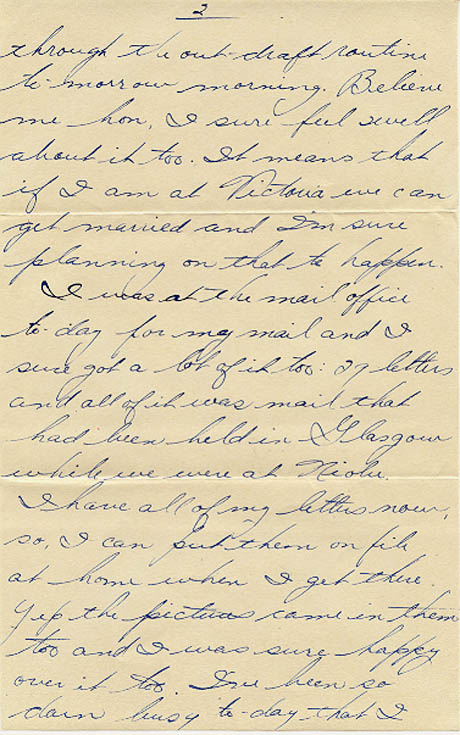 2
through the out-draft routine
to-morrow morning. Believe
me hon, I sure feel swell
about it too. It means that
if I am at Victoria we can
get married and I'm sure
planning on that to happen.
I was at the mail office
to-day for my mail and I
sure got a lot of it too: 27 letters
and all of it was mail that
had been held in Glasgow
while we were at Niobe.
I have all of my letters now,
so, I can put them on file
at home when I get there.
Yep the pictures came in them
too and I was sure happy
over it too. I've been so
darn busy to-day that I